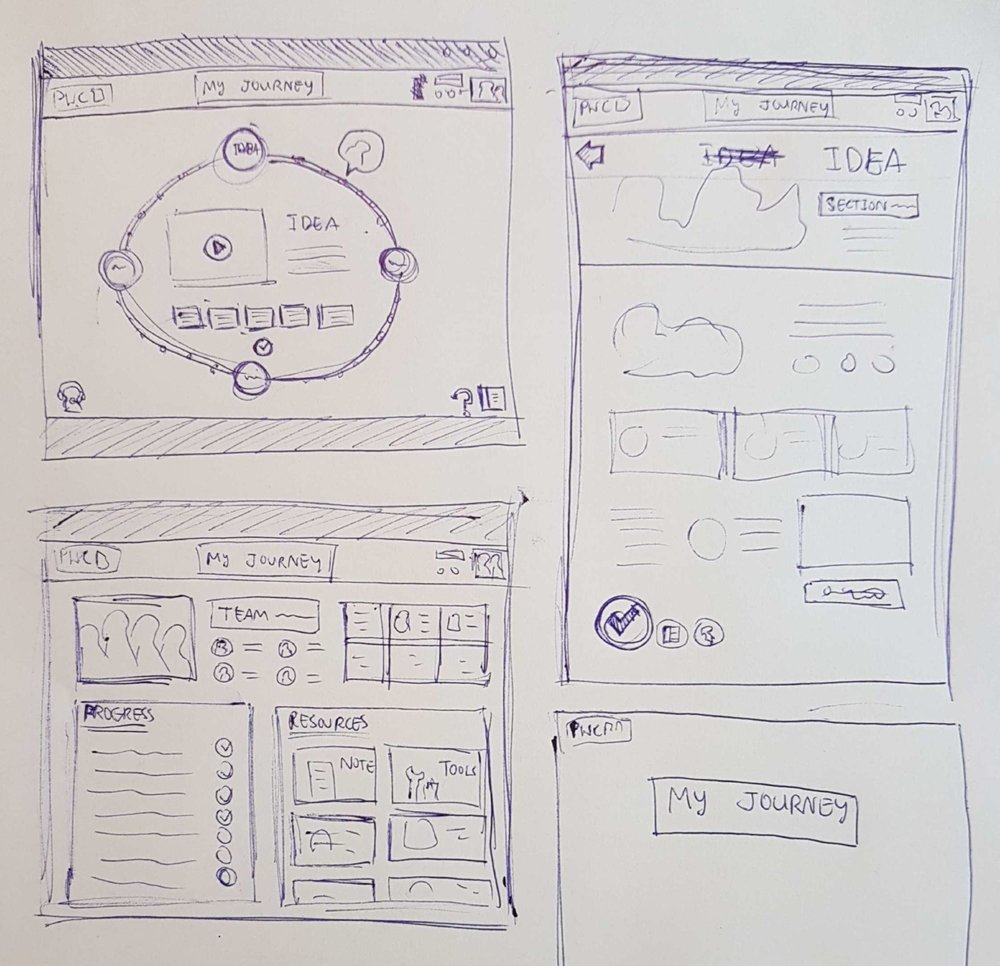 PWCD
MY JOURNEY
IDEA
IDEA
PWCD
MY JOURNEY
IDEA
IDEA
SECTION
PWCD
MY JOURNEY
TEAM
PROGRESS
RESOURCES
NOTE
TOOLS
MY JOURNEY